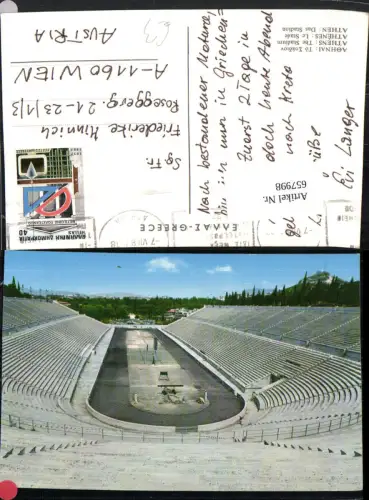 ΑΘΗΝΑΙ: Τό Στάδιον
ATHENS: The Stadium
ATHÈNES: Le Stade
ATHEN: Das Stadion
Nach bestandener Matura,
bin ich nun in Griechen=
zuerst 2 Tage in
doch heute Abend
nach Kreta
Evi Langer
Artikel Nr.
657998
ΕΛΛΑΣ-GREECE
Sg. Fr.
Friederike
Roseggerg. 21-23/1/3
A-1160 WIEN
AUSTRIA
ΕΛΛΗΝΙΚΗ ΔΗΜΟΚΡΑΤΙΑ
40
HELLAS